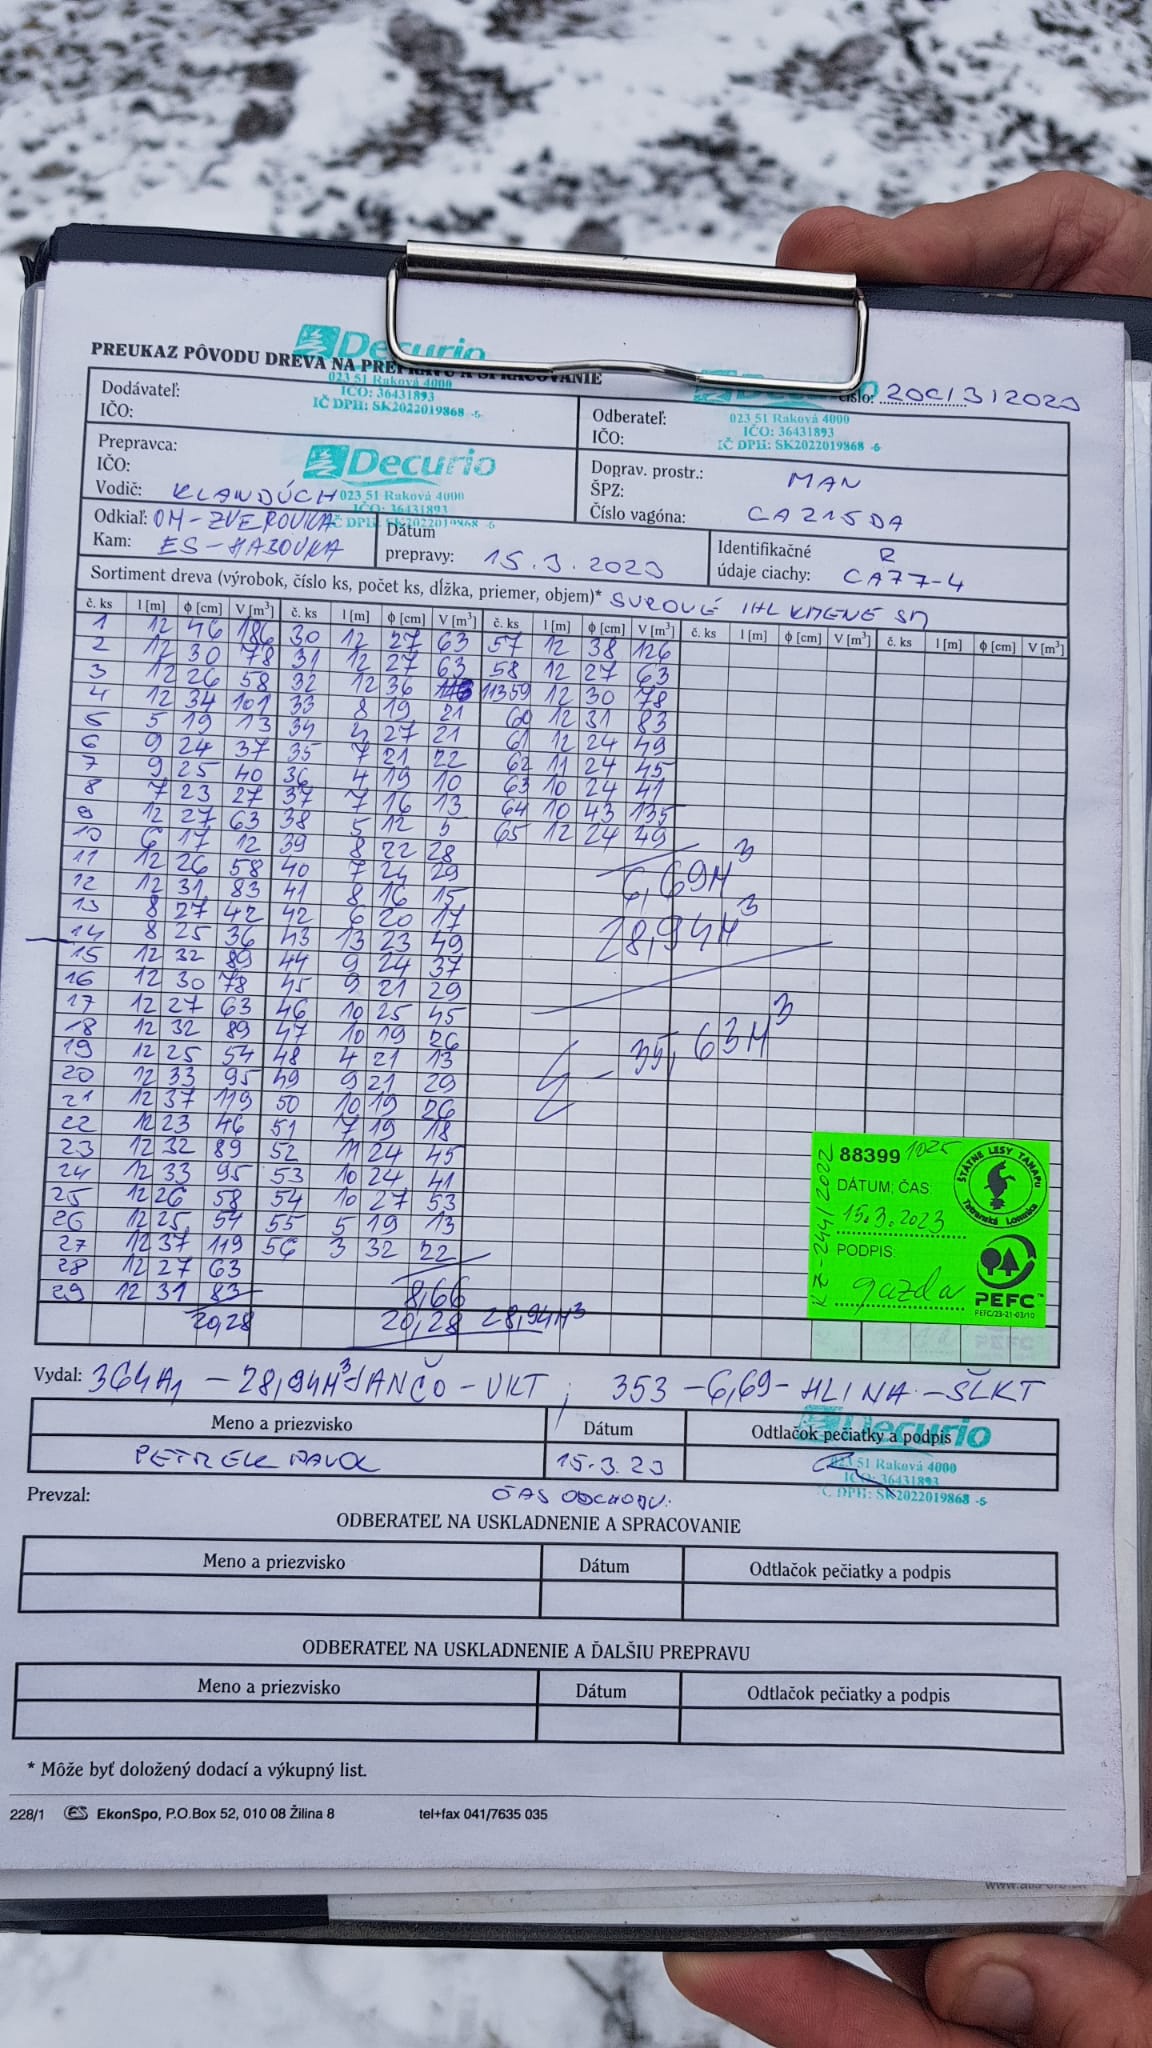 Decurio
PREUKAZ PÔVODU DREVA NA PREPRAVU A SPRACOVANIE
023 51 Raková 4000
IČO: 36431893
IČ DPH: SK2022019868 -5-
číslo: 20C/3/2023
Dodávateľ:
IČO:
Odberateľ:
IČO:
023 51 Raková 4000
IČO: 36431893
IČ DPH: SK2022019868 -5
Prepravca:
IČO:
Vodič: KLANDÚCH
Decurio
023 51 Raková 4000
IČO: 36431893
IČ DPH: SK2022019868 -5
Doprav. prostr.: MAN
ŠPZ:
Číslo vagóna: CA215DA
Odkiaľ: OM-ZVEROVKA
Kam: ES-HABOVKA
Dátum
prepravy: 15.3.2023
Identifikačné R
údaje ciachy: CA77-4
Sortiment dreva (výrobok, číslo ks, počet ks, dĺžka, priemer, objem)* SUROVÉ IHL KMENE SM
č. ks l [m] ϕ [cm] V [m³] č. ks l [m] ϕ [cm] V [m³] č. ks l [m] ϕ [cm] V [m³] č. ks l [m] ϕ [cm] V [m³] č. ks l [m] ϕ [cm] V [m³]
1 12 46 186 30 12 27 63 57 12 38 126
2 12 30 78 31 12 27 63 58 12 27 63
3 12 26 58 32 12 36 113 59 12 30 78
4 12 34 101 33 8 19 21 60 12 31 83
5 5 19 13 34 4 27 21 61 12 24 49
6 9 24 37 35 7 21 22 62 11 24 45
7 9 25 40 36 4 19 10 63 10 24 41
8 7 23 27 37 7 16 13 64 10 43 135
9 12 27 63 38 5 12 5 65 12 24 49
10 6 17 12 39 8 22 28
11 12 26 58 40 7 24 29 6,69M³
12 12 31 83 41 8 16 15
13 8 27 42 42 6 20 17 28,94M³
14 8 25 36 43 13 23 49
15 12 32 89 44 9 24 37
16 12 30 78 45 9 21 29
17 12 27 63 46 10 25 45
18 12 32 89 47 10 19 26 35,63M³
19 12 25 54 48 4 21 13
20 12 33 95 49 9 21 29
21 12 37 119 50 10 19 26
22 12 23 46 51 7 19 18
23 12 32 89 52 11 24 45
24 12 33 95 53 10 24 41
25 12 26 58 54 10 27 53
26 12 25 54 55 5 19 13
27 12 37 119 56 3 32 22
28 12 27 63
29 12 31 83 8,66
20,28 20,28 28,94M³
KZ-244/2022
88399 1025
DÁTUM; ČAS:
15.3.2023
PODPIS:
gazda
ŠTÁTNE LESY TANAPu
Tatranská Lomnica
PEFC™
PEFC/23-21-03/10
Vydal: 364A1 - 28,94M³ JANČO - UKT ; 353 - 6,69 - HLINA - ŠLKT
Meno a priezvisko Dátum Odtlačok pečiatky a podpis
PETREK PAVOL 15.3.23
Decurio
023 51 Raková 4000
IČO: 36431893
IČ DPH: SK2022019868 -5
Prevzal: ČAS ODCHODU:
ODBERATEĽ NA USKLADNENIE A SPRACOVANIE
Meno a priezvisko Dátum Odtlačok pečiatky a podpis
ODBERATEĽ NA USKLADNENIE A ĎALŠIU PREPRAVU
Meno a priezvisko Dátum Odtlačok pečiatky a podpis
* Môže byť doložený dodací a výkupný list.
228/1 ES EkonSpo, P.O.Box 52, 010 08 Žilina 8 tel+fax 041/7635 035